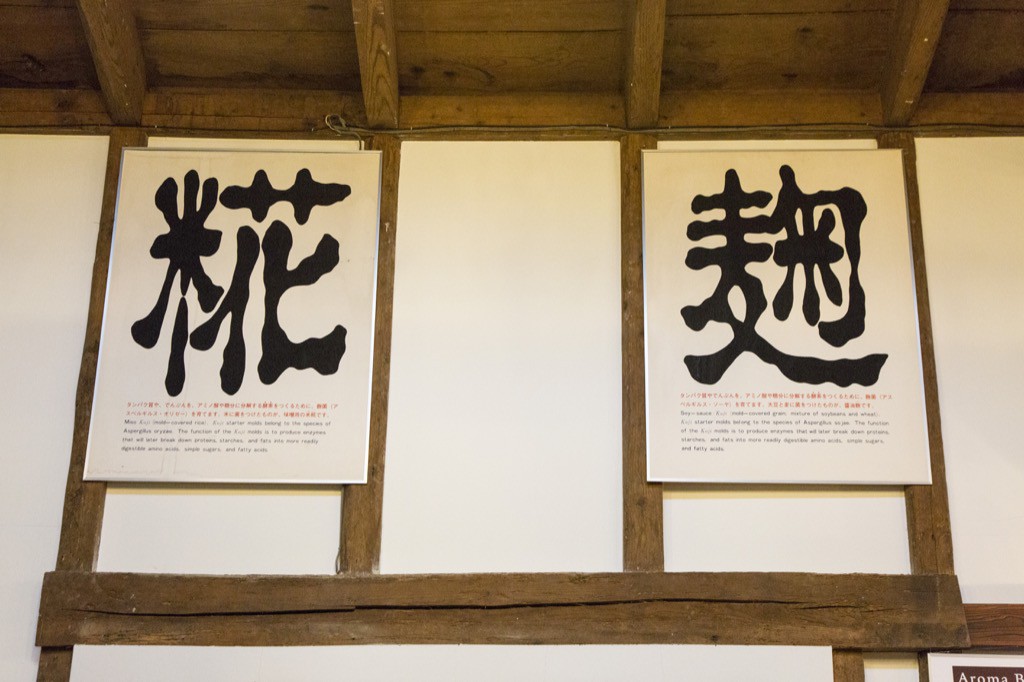 糀
タンパク質や、でんぷんを、アミノ酸や糖分に分解する酵素をつくるために、麹菌（ア
スペルギルス・オリゼー）を育てます。米に菌をつけたものが、味噌用の米糀です。
Miso Koji (mold-covered rice). Koji starter molds belong to the species of
Aspergillus oryzae. The function of the Koji molds is to produce enzymes
that will later break down proteins, starches, and fats into more readily
digestible amino acids, simple sugars, and fatty acids.
麹
タンパク質や、でんぷんを、アミノ酸や糖分に分解する酵素をつくるために、麹菌（アス
ペルギルス・ソーヤ）を育てます。大豆と麦に菌をつけたものが、醤油麹です。
Soy-sauce Koji (mold-covered grain, mixture of soybeans and wheat).
Koji starter molds belong to the species of Aspergillus sojae. The function
of the Koji molds is to produce enzymes that will later break down proteins,
starches, and fats into more readily digestible amino acids, simple sugars,
and fatty acids.
Aroma